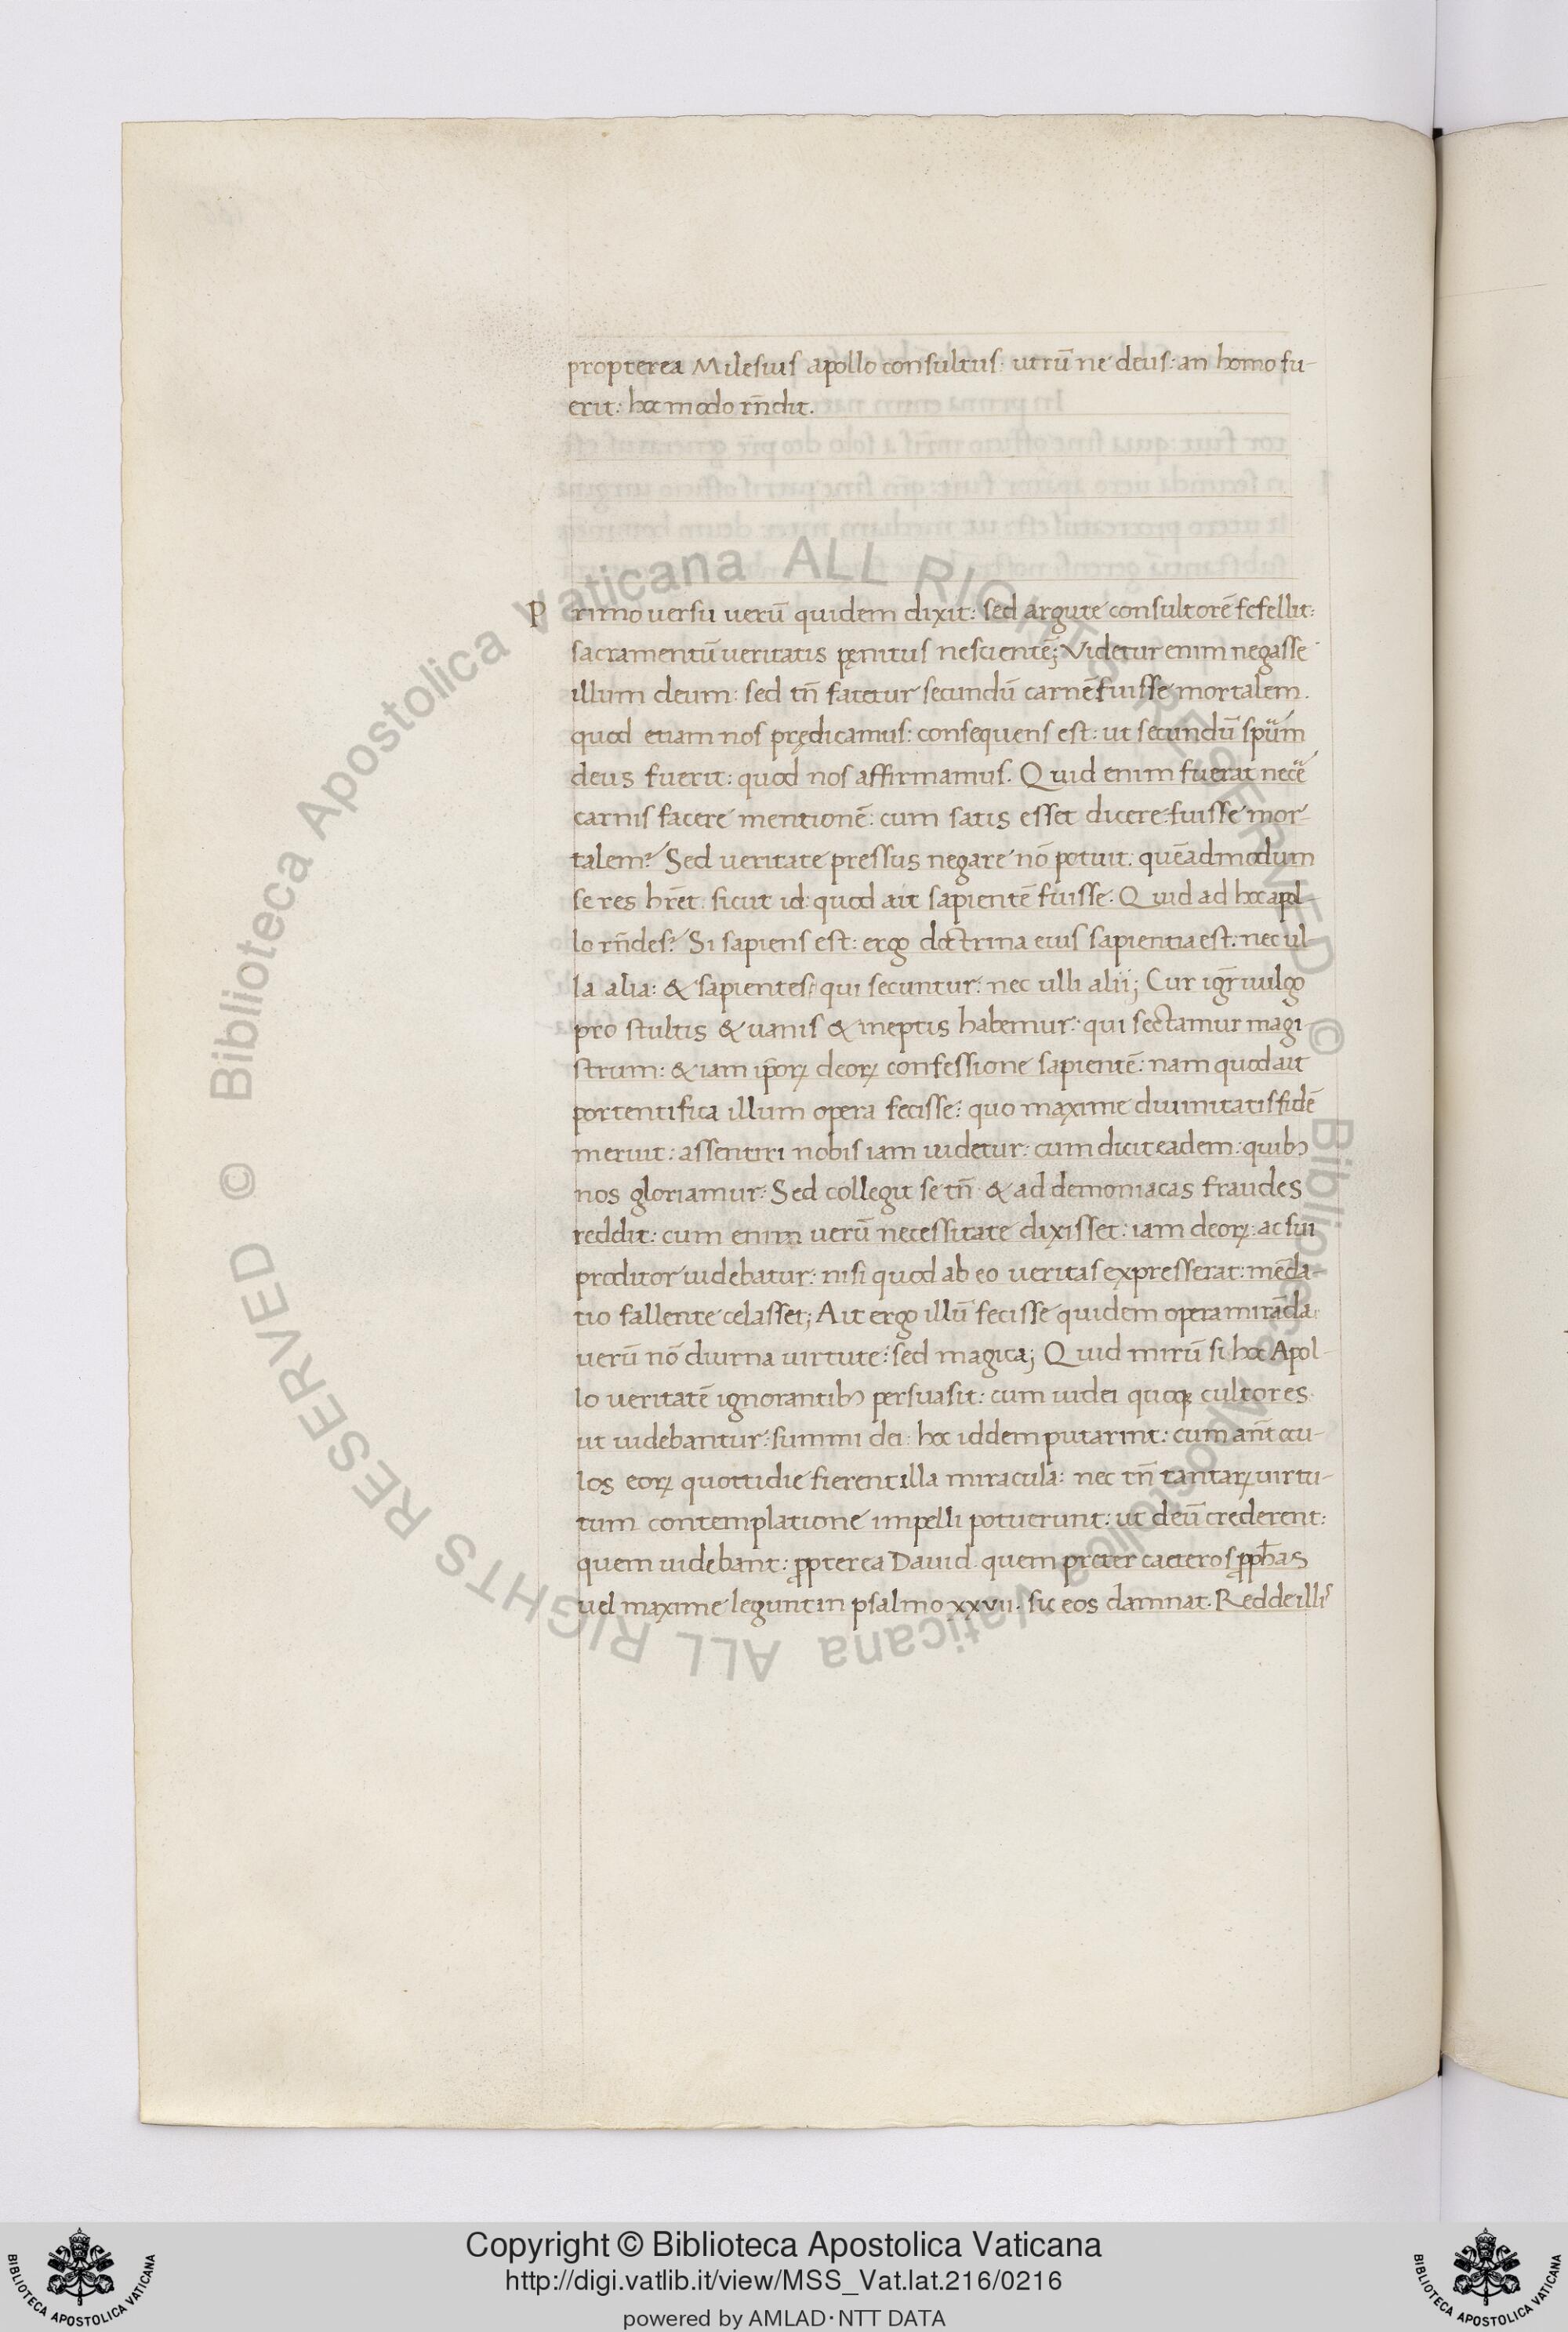 propterea Milesius apollo consultus: utrū ne deus: an homo fu-
erit: hoc modo rn̄dit.
Primo versu uerū quidem dixit: sed argute consultorē fefellit:
sacramentū ueritatis pęnitus nescientē; Videtur enim negasse
illum deum: sed tn̄ fatetur secundū carnē fuisse mortalem.
quod etiam nos prędicamus: consequens est: ut secundū spūm
deus fuerit: quod nos affirmamus. Quid enim fuerat necē
carnis facere mentionē: cum satis esset dicere: fuisse mor-
talem? Sed ueritate pressus negare nō potuit: quēadmodum
se res hr̄et: sicut id: quod ait sapientē fuisse. Quid ad hoc apol-
lo rn̄des? Si sapiens est: ergo doctrina eius sapientia est: nec ul-
la alia: & sapientes: qui secuntur: nec ulli alii; Cur igr̄ uulgo
pro stultis & uanis & ineptis habemur: qui sectamur magi
strum: & iam ip̄oꝝ deoꝝ confessione sapientē: nam quod ait
portentifica illum opera fecisse: quo maxime diuinitatis fidē
meruit: assentiri nobis iam uidetur: cum dicit eadem: quibꝫ
nos gloriamur: Sed collegit se tn̄ & ad demoniacas fraudes
reddit: cum enim uerū necessitate dixisset: iam deoꝝ: ac sui
proditor uidebatur: nisi quod ab eo ueritas expresserat: mēda-
tio fallente celasset; Ait ergo illū fecisse quidem opera mirāda:
uerū nō diuina uirtute: sed magica; Quid mirū si hoc Apol-
lo ueritatē ignorantibꝫ persuasit: cum iudei quoqꝫ cultores
ut uidebantur: summi dei: hoc iddem putarint: cum an̄t ocu-
los eoꝝ quottidie fierent illa miracula: nec tn̄ tantaꝝ uirtu-
tum contemplatione impelli potuerunt: ut deū crederent:
quem uidebant: ꝓpterea Dauid quem preter caeteros ꝓph̄as
uel maxime legunt in psalmo xxvii. sic eos damnat. Redde illis
© Biblioteca Apostolica Vaticana ALL RIGHTS RESERVED
© Biblioteca Apostolica Vaticana ALL RIGHTS RESERVED
Copyright © Biblioteca Apostolica Vaticana
http://digi.vatlib.it/view/MSS_Vat.lat.216/0216
powered by AMLAD·NTT DATA
BIBLIOTECA APOSTOLICA VATICANA
BIBLIOTECA APOSTOLICA VATICANA